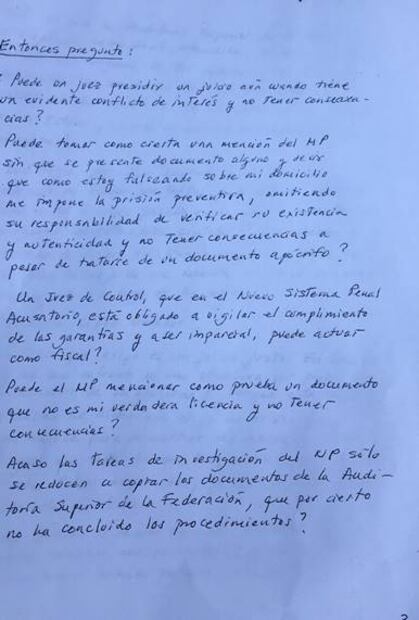 Entonces pregunto:
¿Puede un juez presidir un juicio aún cuando tiene
un evidente conflicto de interés y no tener consecuen-
cias?
Puede tomar como cierta una mención del MP
sin que se presente documento alguno y decir
que como estoy falseando sobre mi domicilio
me impone la prisión preventiva, omitiendo
su responsabilidad de verificar su existencia
y autenticidad y no tener consecuencias a
pesar de tratarse de un documento apócrifo?
Un Juez de Control, que en el Nuevo Sistema Penal
Acusatorio, está obligado a vigilar el cumplimiento
de las garantías y a ser imparcial, puede actuar
como fiscal?
Puede el MP mencionar como prueba un documento
que no es mi verdadera licencia y no tener
consecuencias?
Acaso las tareas de investigación del MP sólo
se reducen a copiar los documentos de la Audi-
toría Superior de la Federación, que por cierto
no ha concluido los procedimientos?